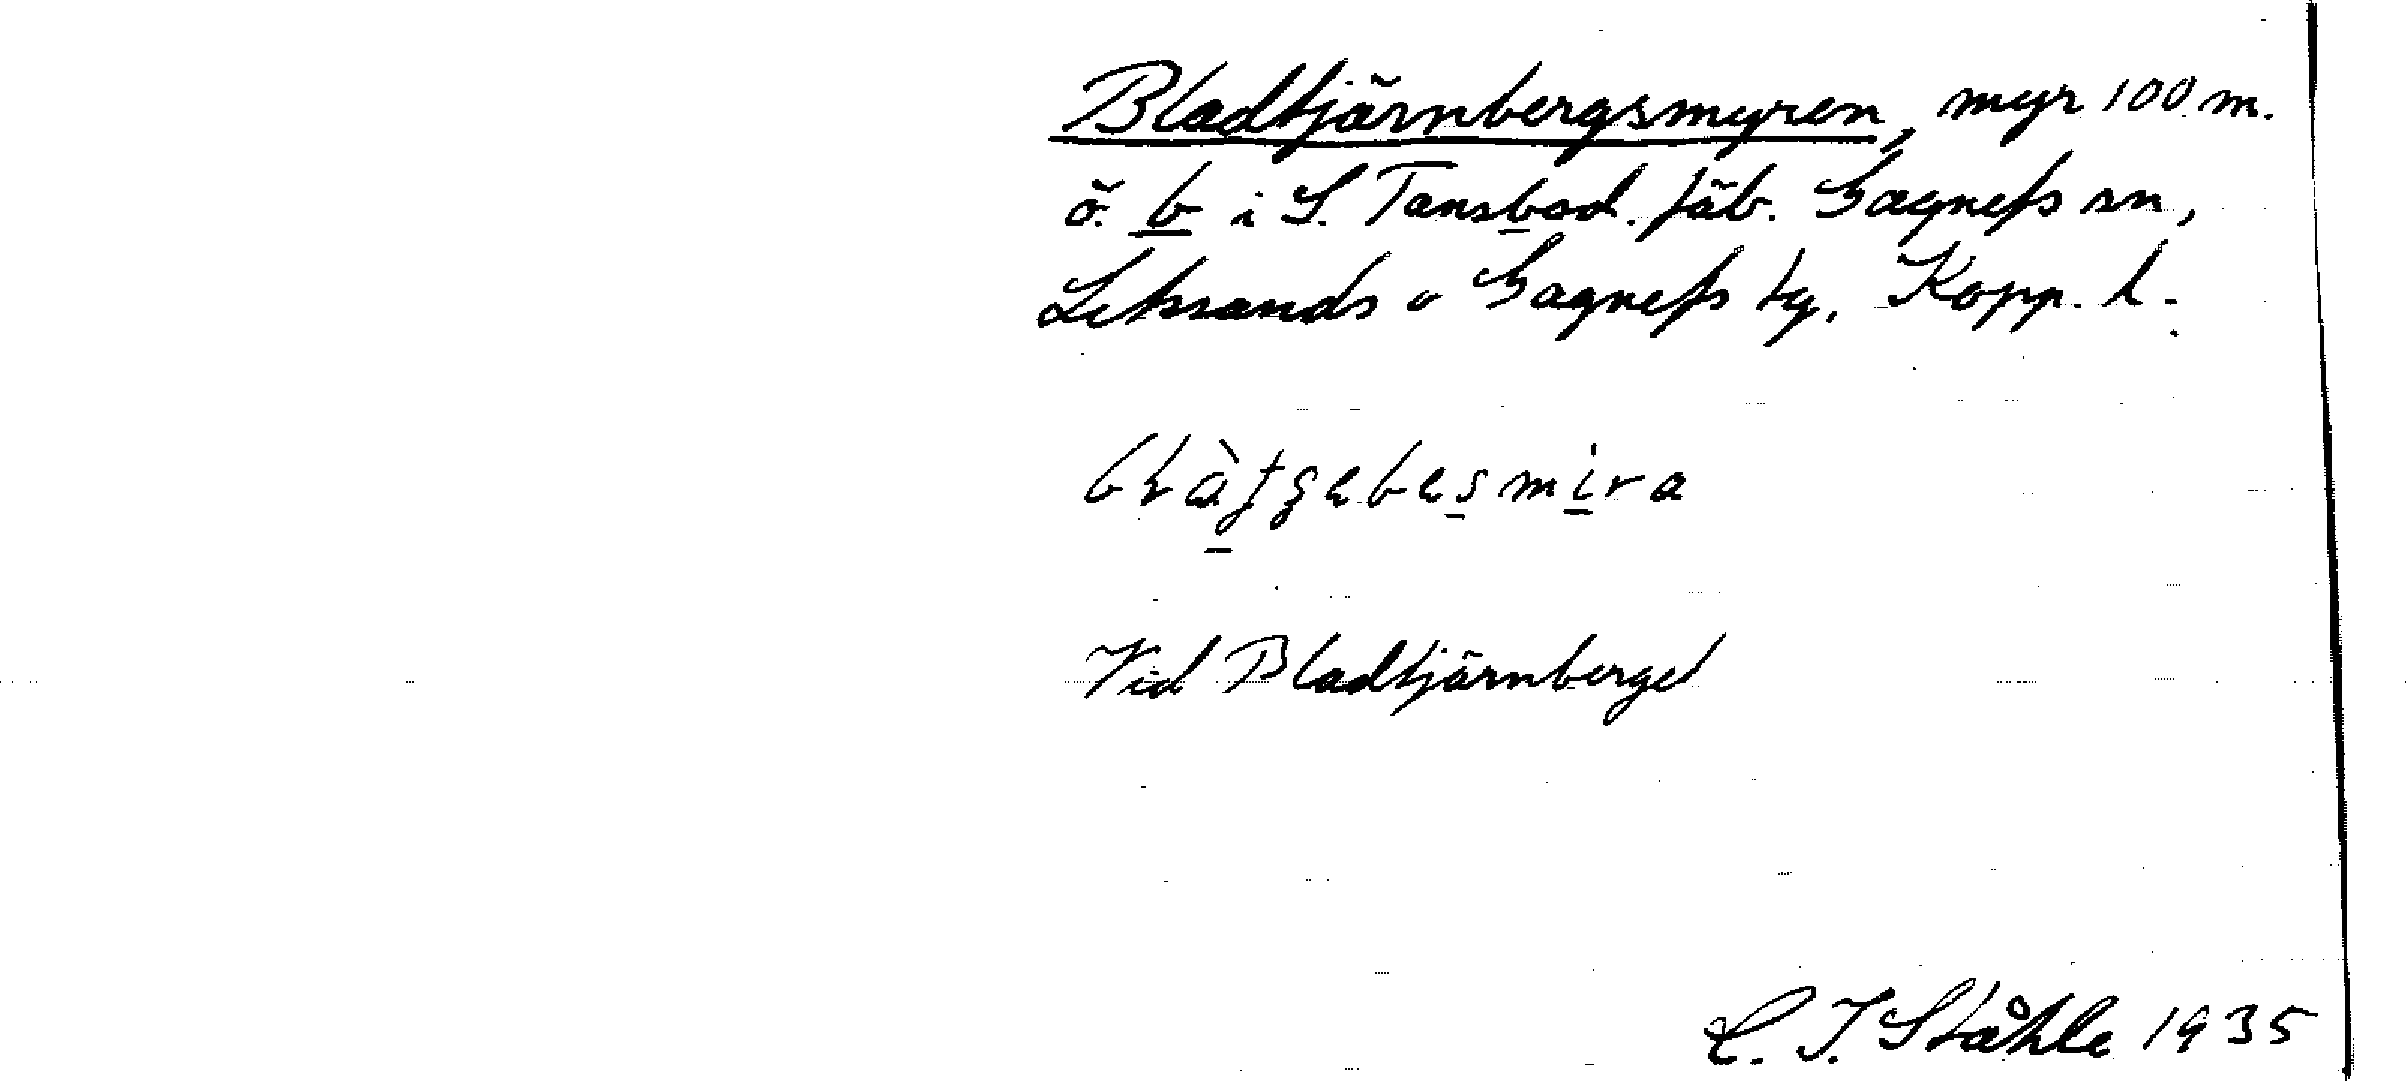 Bladtjärnbergsmyren, myr 100 m.
ö. b i S. Tansbod. fäb. Gagnefs sn,
Leksands o Gagnefs tg, Kopp. l.
Vid Bladtjärnberget
C. I. Ståhle 1935